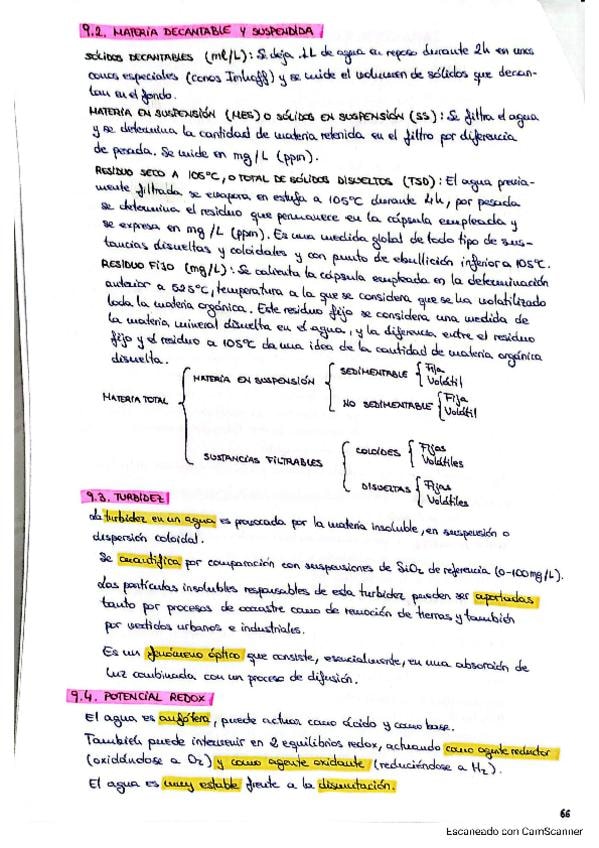 9.2. MATERIA DECANTABLE Y SUSPENDIDA
SÓLIDOS DECANTABLES (mL/L): Se deja 1L de agua en reposo durante 2h en unos
conos especiales (conos Imhoff) y se mide el volumen de sólidos que decan-
tan en el fondo.
MATERIA EN SUSPENSIÓN (MES) O SÓLIDOS EN SUSPENSIÓN (SS): Se filtra el agua
y se determina la cantidad de materia retenida en el filtro por diferencia
de pesada. Se mide en mg/L (ppm).
RESIDUO SECO A 105ºC, O TOTAL DE SÓLIDOS DISUELTOS (TSD): El agua previa-
mente filtrada se evapora en estufa a 105ºC durante 4h, por pesada
se determina el residuo que permanece en la cápsula empleada y
se expresa en mg/L (ppm). Es una medida global de todo tipo de sus-
tancias disueltas y coloidales y con punto de ebullición inferior a 105ºC.
RESIDUO FIJO (mg/L): Se calienta la cápsula empleada en la determinación
anterior a 525ºC, temperatura a la que se considera que se ha volatilizado
toda la materia orgánica. Este residuo fijo se considera una medida de
la materia mineral disuelta en el agua, y la diferencia entre el residuo
fijo y el residuo a 105ºC da una idea de la cantidad de materia orgánica
disuelta.
MATERIA TOTAL
MATERIA EN SUSPENSIÓN
SEDIMENTABLE
Fija
Volátil
NO SEDIMENTABLE
Fija
Volátil
SUSTANCIAS FILTRABLES
COLOIDES
Fijas
Volátiles
DISUELTAS
Fijas
Volátiles
9.3. TURBIDEZ
La turbidez en un agua es provocada por la materia insoluble, en suspensión o
dispersión coloidal.
Se cuantifica por comparación con suspensiones de SiO2 de referencia (0-100mg/L).
Las partículas insolubles responsables de esta turbidez pueden ser aportadas
tanto por procesos de arrastre como de remoción de tierras y también
por vertidos urbanos e industriales.
Es un fenómeno óptico que consiste, esencialmente, en una absorción de
luz combinada con un proceso de difusión.
9.4. POTENCIAL REDOX
El agua es anfótera, puede actuar como ácido y como base.
También puede intervenir en 2 equilibrios redox, actuando como agente reductor
(oxidándose a O2) y como agente oxidante (reduciéndose a H2).
El agua es muy estable frente a la dismutación.
66
Escaneado con CamScanner